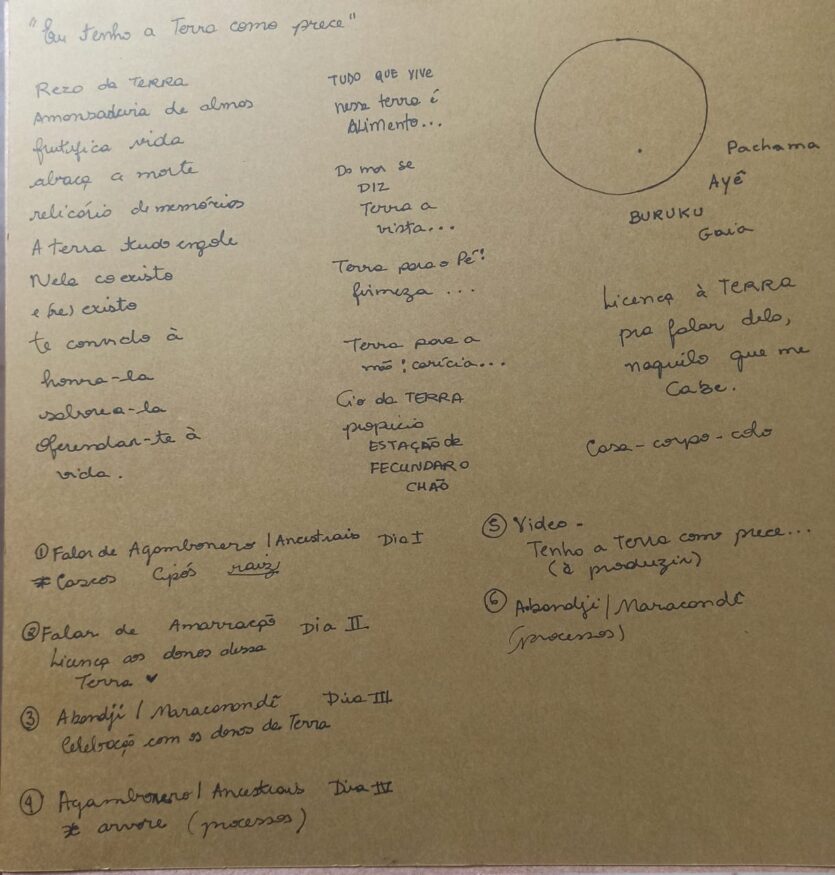 "Eu tenho a Terra como prece"
Rezo da TERRA
Amansadeira de almas
frutifica vida
abraça a morte
relicário de memórias
A terra tudo engole
Nela coexisto
e (re) existo
te convido à
honra-la
saborea-la
Oferendar-te à
vida.
TUDO QUE VIVE
nessa terra é
ALimento...
Do mar se
DIZ
Terra a
vista...
Terra para o Pé!
firmeza ...
Terra para a
mão! carícia...
Cio da TERRA
propicio
ESTAÇÃO de
FECUNDAR O
CHÃO
Pachama
Ayê
BURUKU
Gaia
Licença à TERRA
pra falar dela,
naquilo que me
Cabe.
Casa-corpo-colo
① Falar de Agambonero / Ancestrais Dia I
* Cascos Cipós raiz
② Falar de Amarração Dia II
Licença aos donos dessa
Terra ♥
③ Abandji / Maracanandê Dia III
Celebração com os donos da Terra
④ Agambonero / Ancestrais Dia IV
* arvore (processos)
⑤ Video -
Tenho a Terra como prece...
(à produzir)
⑥ Abandji / Maracondê
(processos)